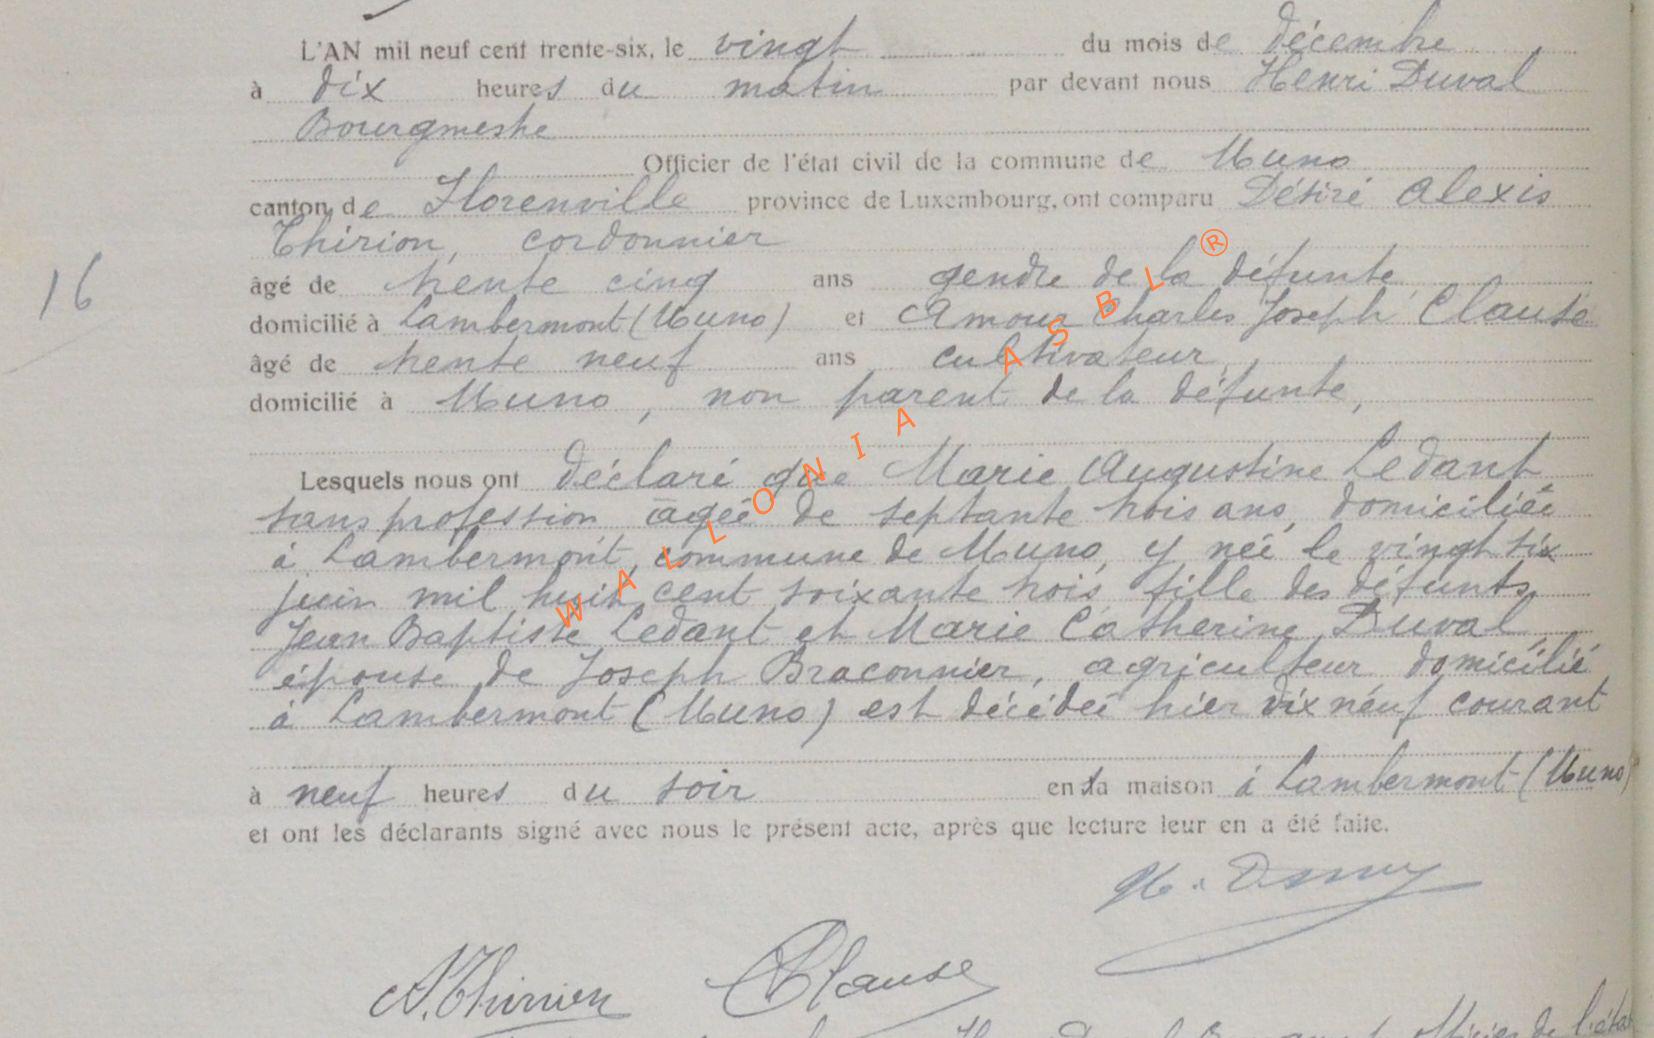 L'AN mil neuf cent trente-six, le vingt du mois de décembre
à dix heures du matin par devant nous Henri Duval
Bourgmestre
Officier de l'état civil de la commune de Muno
canton de Florenville province de Luxembourg, ont comparu Désiré Alexis
Thirion, cordonnier
16
âgé de trente cinq ans gendre de la défunte
domicilié à Lambermont (Muno) et Amour Charles Joseph Clause
âgé de trente neuf ans cultivateur,
domicilié à Muno, non parent de la défunte,
Lesquels nous ont déclaré que Marie Augustine Ledant
sans profession âgée de septante trois ans, domiciliée
à Lambermont, commune de Muno, y née le vingt six
juin mil huit cent soixante trois, fille des défunts
Jean Baptiste Ledant et Marie Catherine Duval,
épouse de Joseph Braconnier, agriculteur domicilié
à Lambermont (Muno) est décédée hier dix neuf courant
à neuf heures du soir en sa maison à Lambermont (Muno)
et ont les déclarants signé avec nous le présent acte, après que lecture leur en a été faite.
A. Thirion Clause
officier de l'état
WALLONIA ASBL ®